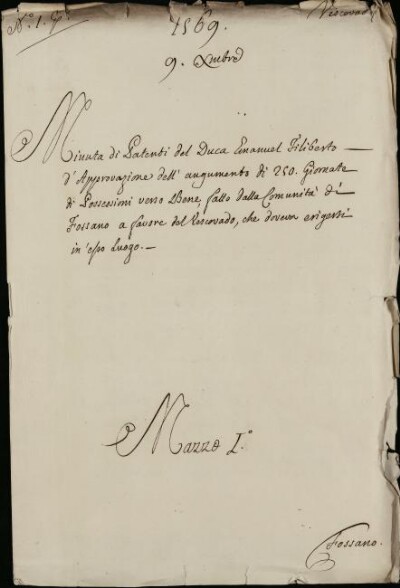 N.° 1. 
Vescovad
1569.
9. Xmbre
Minuta di Patenti del Duca Emanuel Filiberto —
d'Approvazione dell'augumento di 250. Giornate
di Possessioni verso Bene, fatto dalla Comunità di
Fossano a favore del Vescovado, che doveva erigersi
in esso Luogo. —
Mazzo I.°
Fossano.